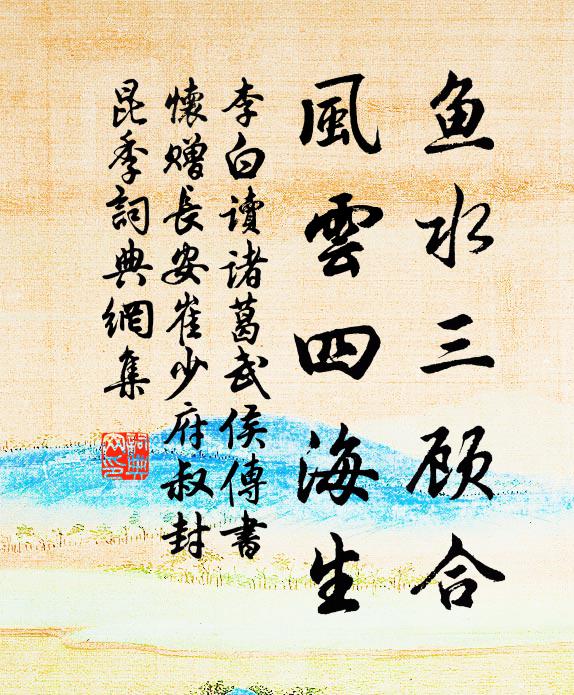 鱼水三顾合
風雲四海生
李白讀諸葛武侯傳書
懷贈長安崔少府叔封
昆季詞典網集